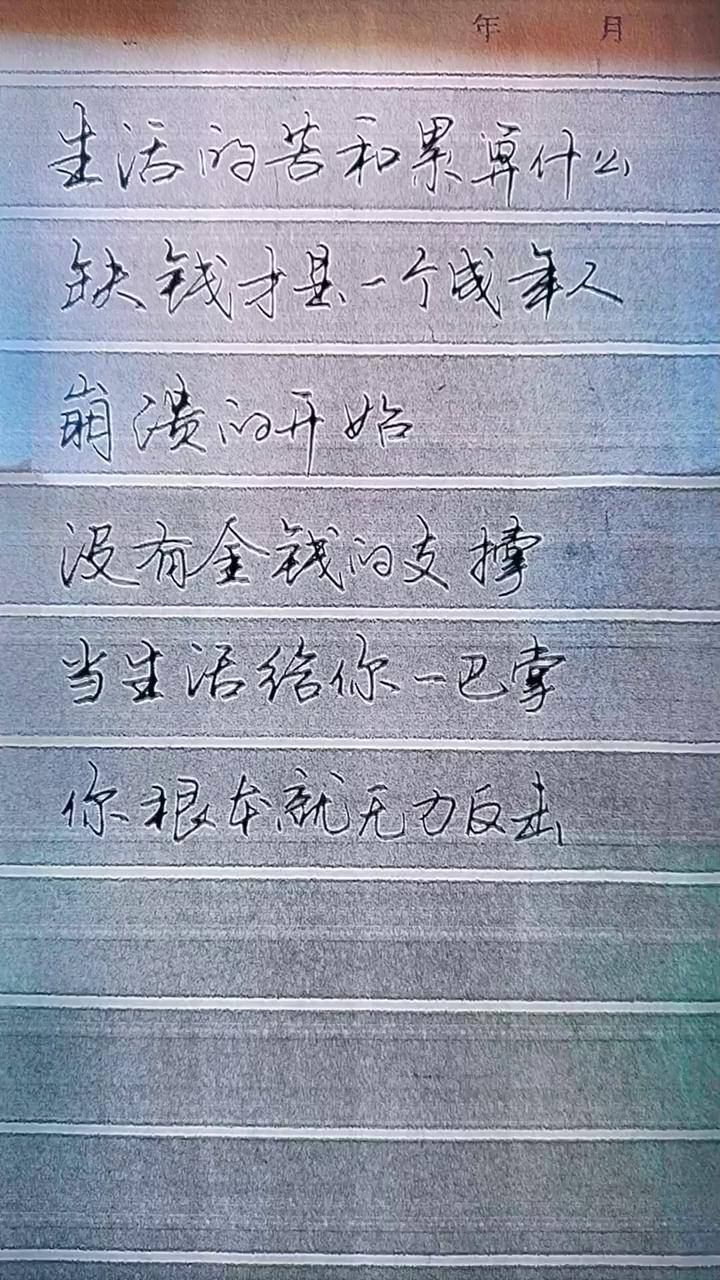 年 月
生活的苦和累算什么
缺钱才是一个成年人
崩溃的开始
没有金钱的支撑
当生活给你一巴掌
你根本就无力反击